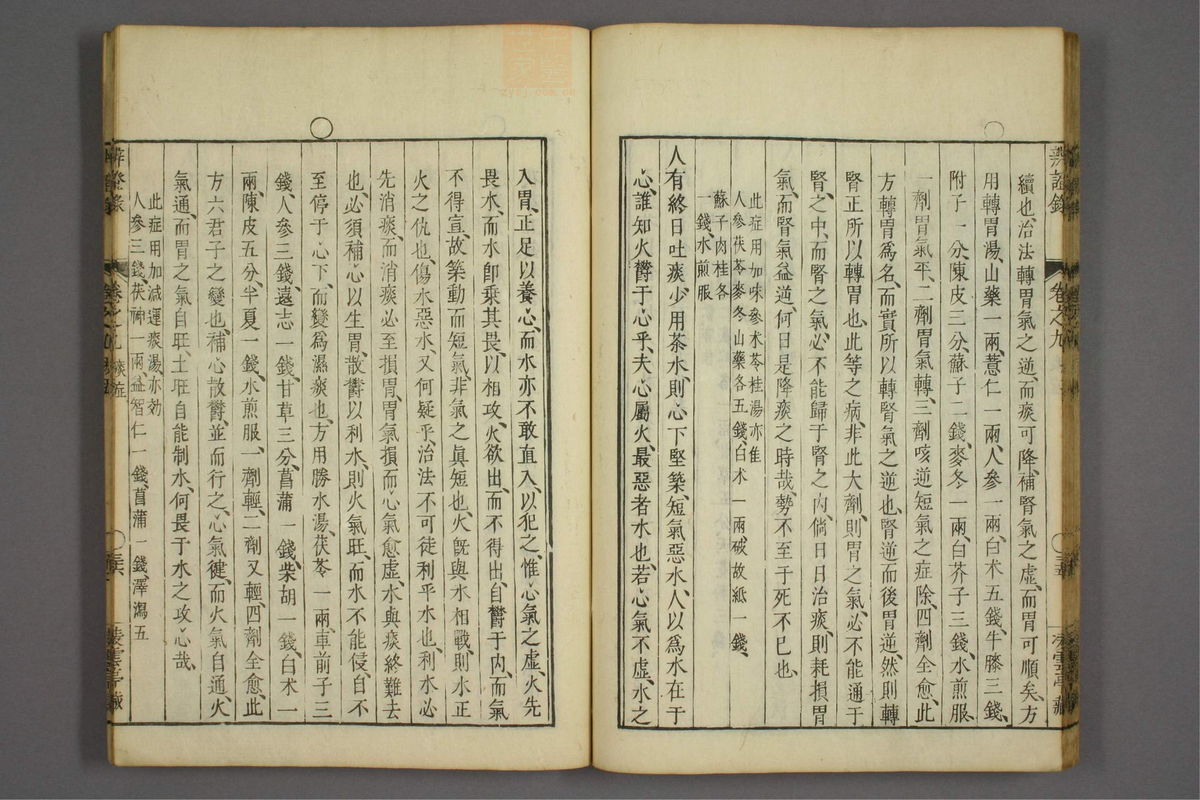 續也、治法轉胃氣之逆、而痰可降、補腎氣之虛、而胃可順矣、方
用轉胃湯、山藥一兩、薏仁一兩、人參一兩、白术五錢、牛膝三錢、
附子一分、陳皮三分、蘇子二錢、麥冬一兩、白芥子三錢、水煎服、
一劑胃氣平、二劑胃氣轉、三劑咳逆短氣之症除、四劑全愈、此
方轉胃爲名、而實所以轉腎氣之逆也、腎逆而後胃逆、然則轉
腎正所以轉胃也、此等之病、非此大劑、則胃之氣、必不能通于
腎之中、而腎之氣、必不能歸于腎之內、倘日日治痰、則耗損胃
氣、而腎氣益逆、何日是降痰之時哉、勢不至于死不已也、
此症用加味參术苓桂湯亦佳
人參茯苓麥冬山藥各五錢、白术一兩、破故紙一錢、
蘇子肉桂各
一錢、水煎服
人有終日吐痰、少用茶水、則心下堅築、短氣惡水、人以爲水在于
心、誰知火欝于心乎、夫心屬火、最惡者水也、若心氣不虛、水之
入胃、正足以養心、而水亦不敢直入、以犯之、惟心氣之虛、火先
畏水、而水卽乘其畏、以相攻、火欲出而不得出、自欝于內、而氣
不得宣、故築動而短氣、非氣之眞短也、火旣與水相戰、則水正
火之仇也、傷水惡水、又何疑乎、治法不可徒利乎水也、利水必
先消痰、而消痰必至損胃、胃氣損而心氣愈虛、水與痰終難去
也、必須補心以生胃、散欝以利水、則火氣旺、而水不能侵、自不
至停于心下、而變爲濕痰也、方用勝水湯、茯苓一兩、車前子三
錢、人參三錢、遠志一錢、甘草三分、菖蒲一錢、柴胡一錢、白术一
兩、陳皮五分、半夏一錢、水煎服、一劑輕、二劑又輕、四劑全愈、此
方六君子之變也、補心散欝、並而行之、心氣健、而火氣自通、火
氣通、而胃之氣自旺、土旺自能制水、何畏于水之攻心哉、
此症用加減運痰湯、亦効
人參三錢、茯神一兩、益智仁一錢、菖蒲一錢、澤瀉五
辨證錄
卷之九